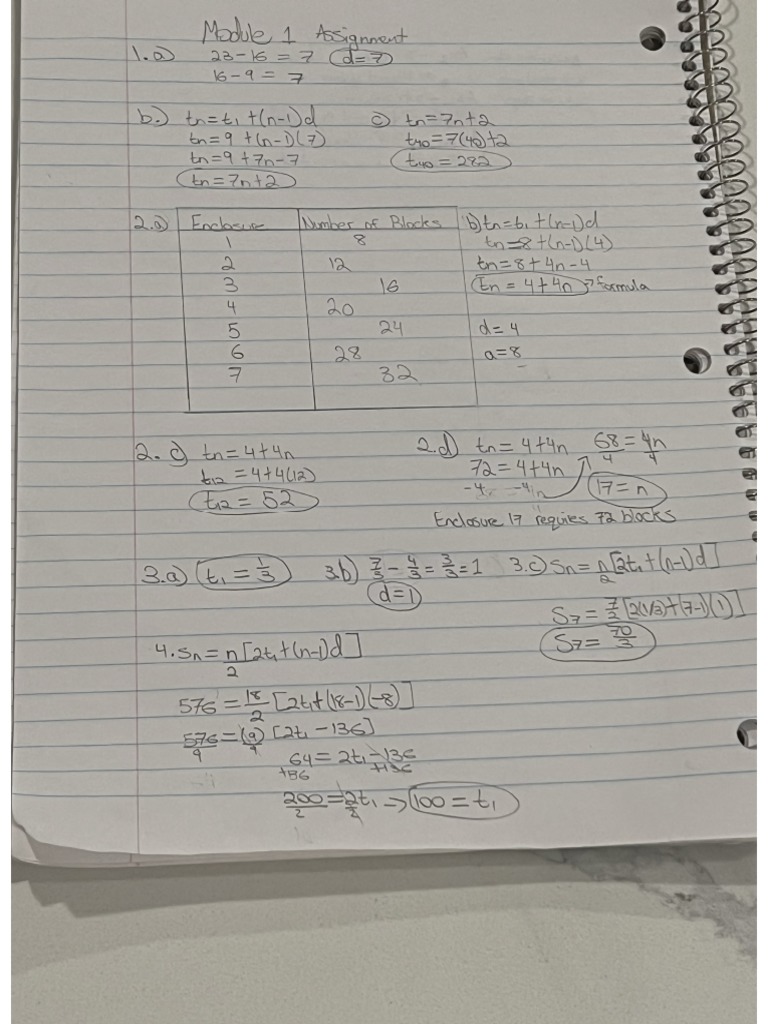 Module 1 Assignment
1.a) 23-16 = 7 d=7
16-9 = 7
b.) tn=t₁+(n-1)d
tn=9+(n-1)(7)
tn=9+7n-7
tn=7n+2
c) tn=7n+2
t40=7(40)+2
t40=282
2.a) Enclosure Number of Blocks
1 8
2 12
3 16
4 20
5 24
6 28
7 32
b) tn=t₁+(n-1)d
tn=8+(n-1)(4)
tn=8+4n-4
tn=4+4n → formula
d=4
a=8
2. c) tn=4+4n
t12=4+4(12)
t12=52
2.d) tn=4+4n
72=4+4n
-4 -4
68/4=4n/4
17=n
Enclosure 17 requies 72 blocks
3.a) t₁=1/3
3.b) 7/3-4/3=3/3=1
d=1
3.c) Sn=n/2[2t₁+(n-1)d]
S7=7/2[2(1/3)+(7-1)(1)]
S7=70/3
4. Sn=n/2[2t₁+(n-1)d]
576=18/2[2t₁+(18-1)(-8)]
576/9=(9)/9[2t₁-136]
64=2t₁-136
+136 +136
200/2=2t₁/2→100=t₁